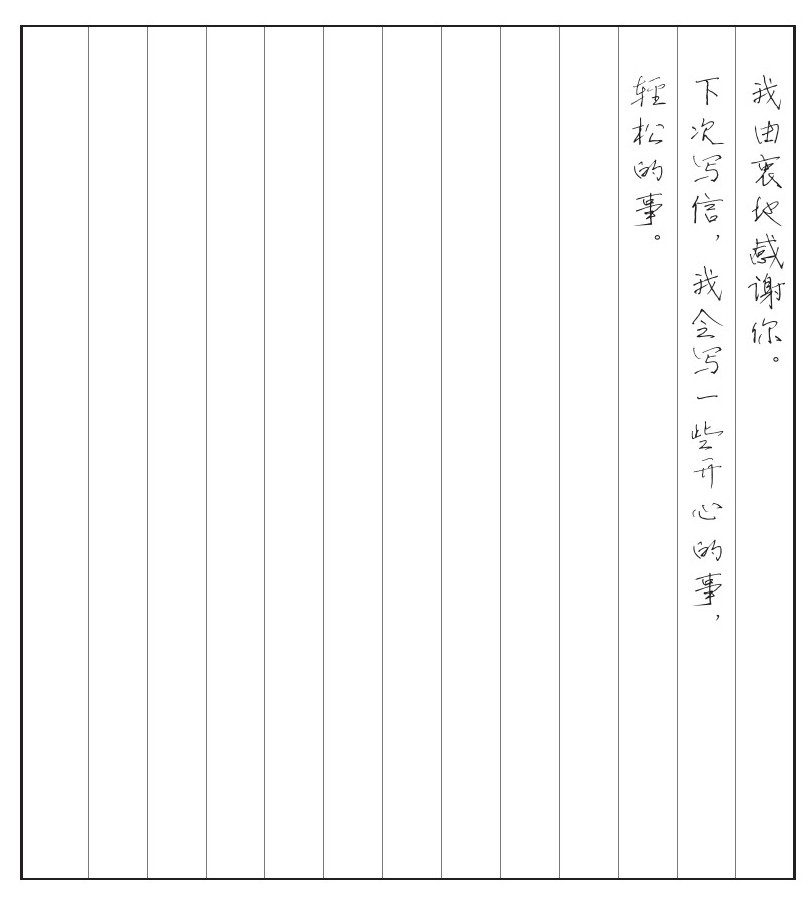 我由衷地感谢你。
下次写信，我会写一些开心的事，
輕松的事。